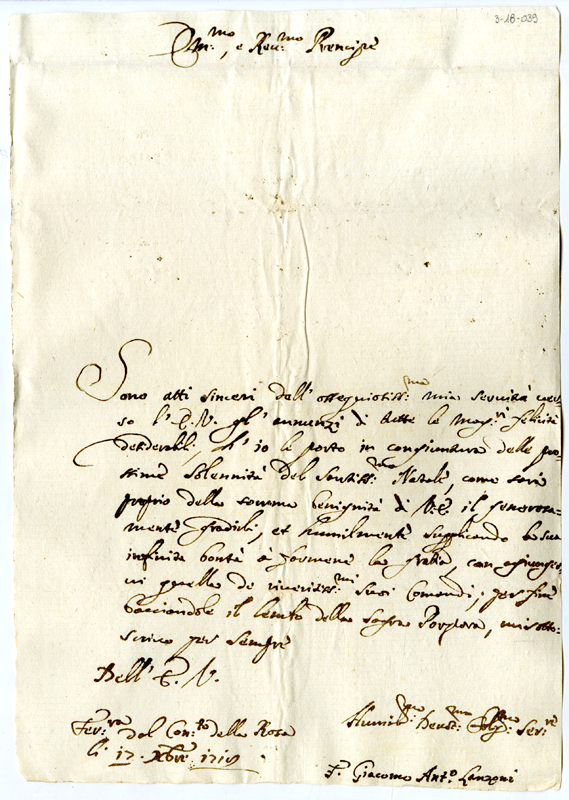 3-18-039
Em.mo, e Reu.mo Prencipe
Sono atti sinceri dell' ossequiotiss.ma mia seruitù uer=
so l' E. V. gl' annunzi di tutte le mag.ri felicità
desiderabli, ch' io le porto in congiuntura delle pros=
sime Solennità del Santiss.mo Natale, come sarà
proprio della somma benignità di V. E. il generosa=
mente gradirli, et humilmente supplicando la sua
infinita bontà à farmene la grazia, con agiunger=
ui quella de riueritiss.mi suoi Comandi, per fine
bacciandole il lembo della Sagra Porpora, mi sotto=
scriuo per sempre
Dell' E. V.
Fer.ra dal Con.to della Rosa
li 17 Xbre
Humil.mo Deuot.mo Seru.re
F. Giacomo Ant.o Lanzoni